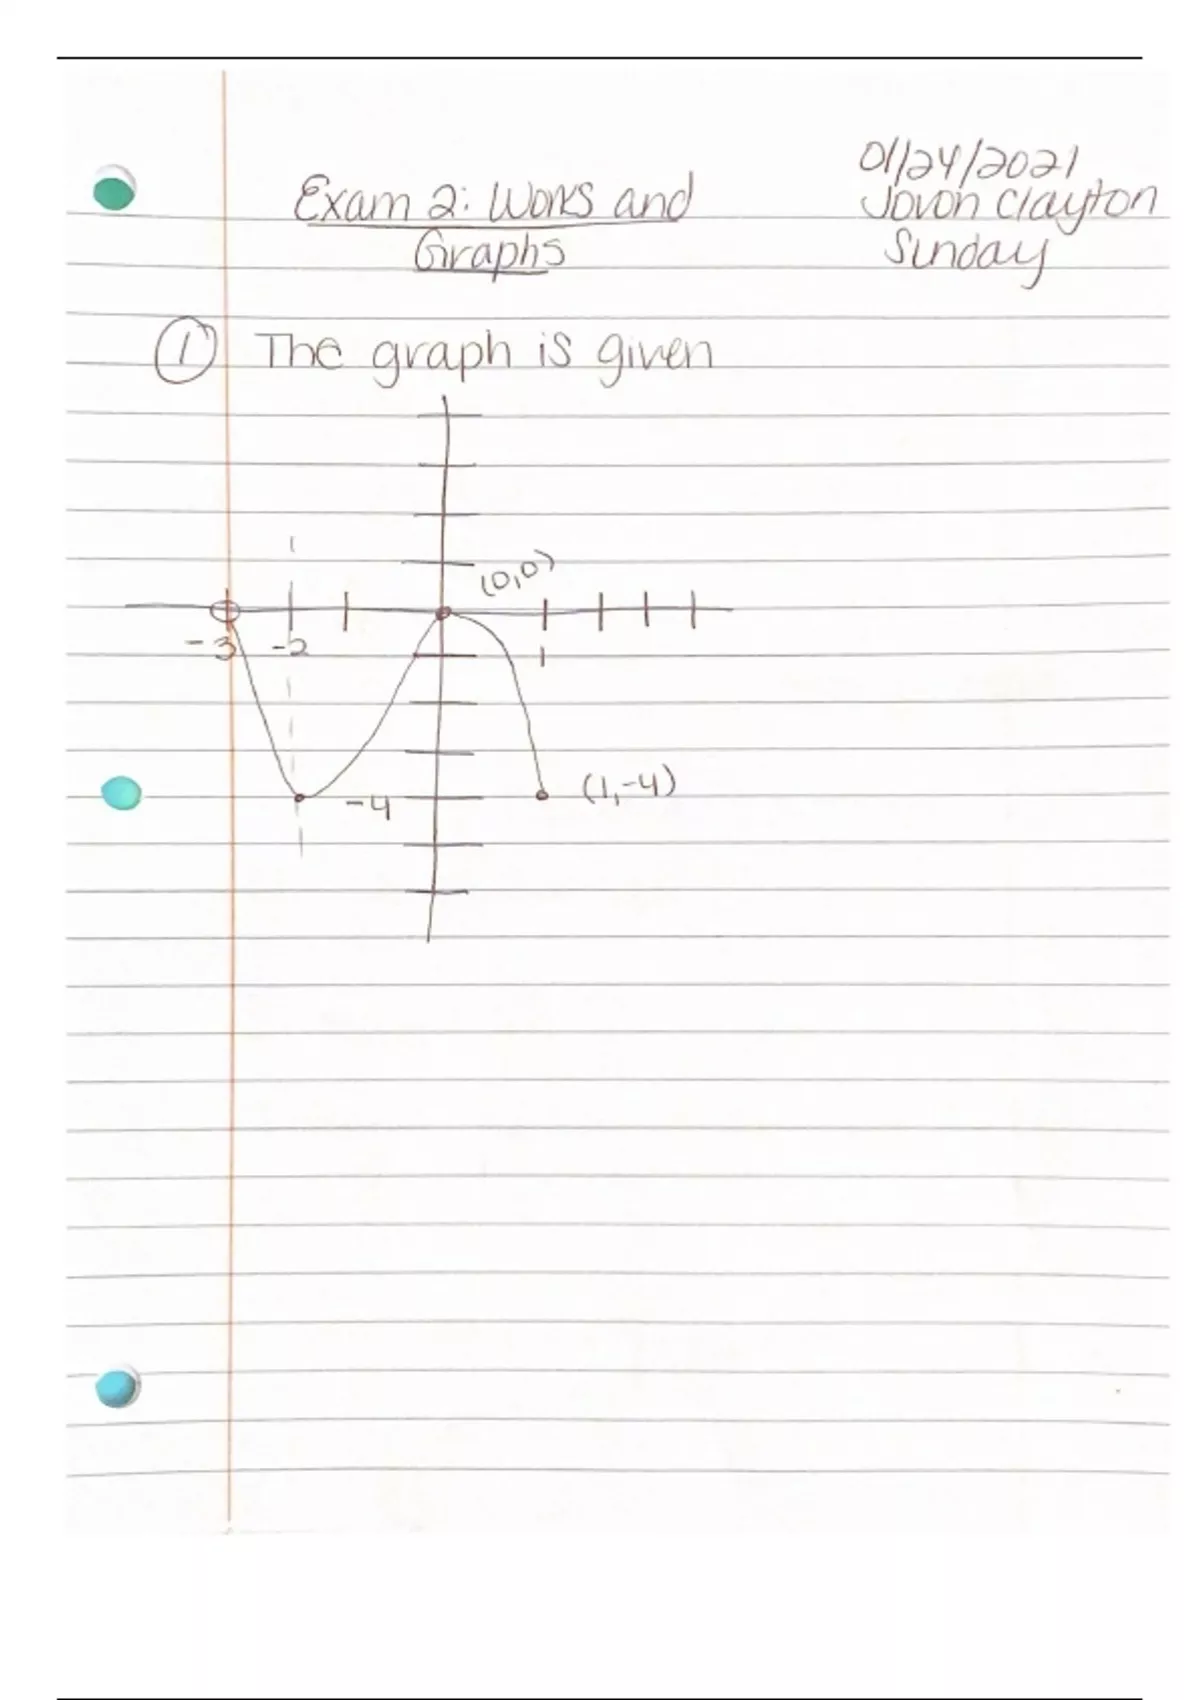 01/24/2021
Exam 2: Works and
Jovon Clayton
Graphs
Sunday
1 The graph is given
(0,0)
-3 -2 1
-4 (1,-4)